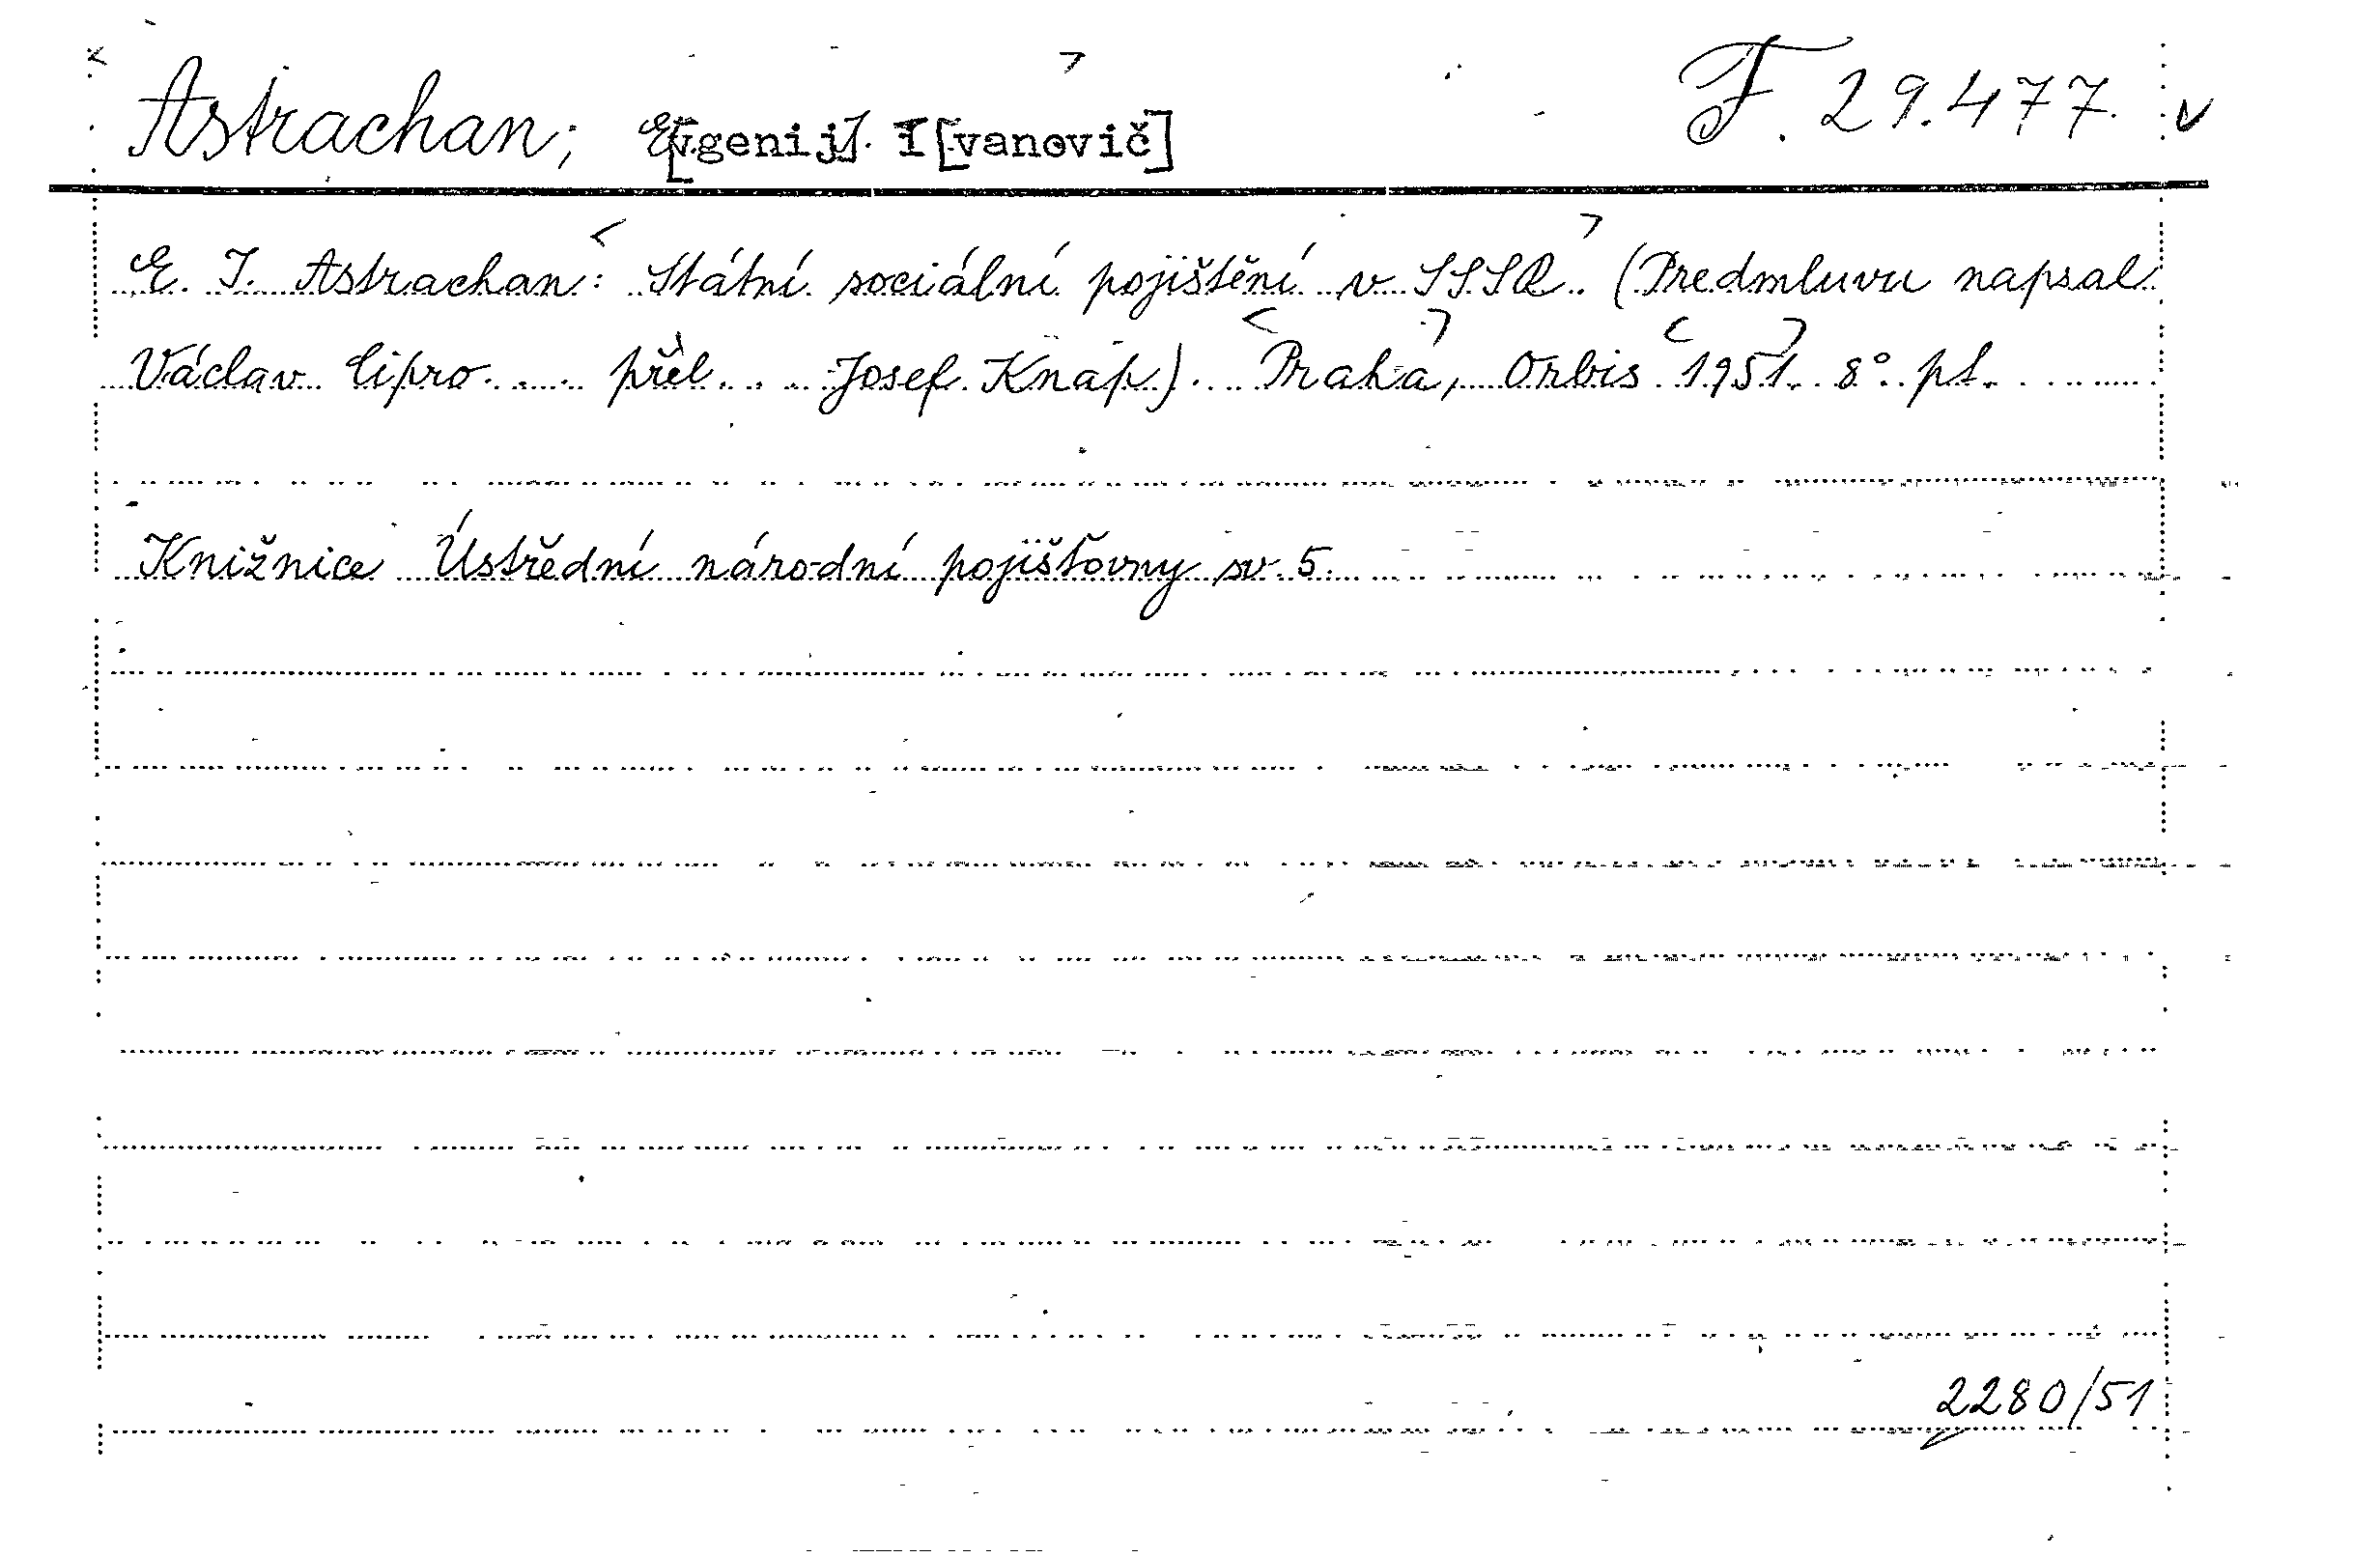 Astrachan, E[vgenij] I[vanovič] F. 29.477. v
E. I. Astrachan: Státní sociální pojištění v SSSR. (Předmluvu napsal
Václav Cipro.... přel.... Josef Knap). Praha, Orbis 1951. 8°. pt.
Knižnice Ústřední národní pojišťovny sv. 5.
2280/51